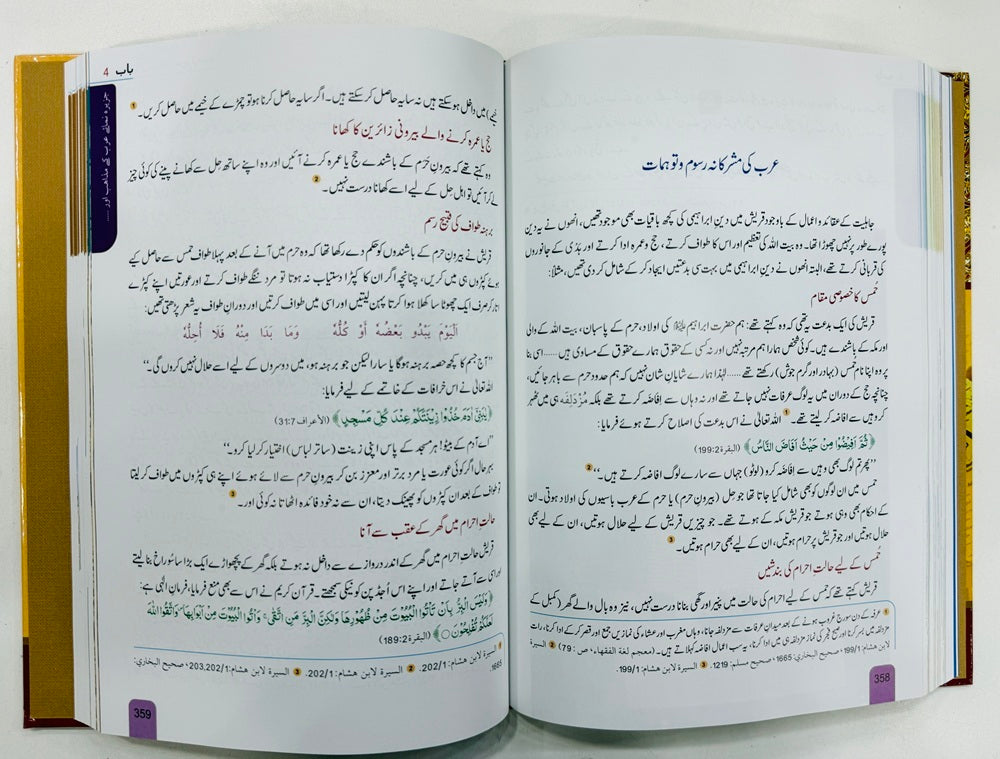 عرب کی مشرکانہ رسوم و توہمات
جاہلیت کے عقائد و اعمال کے باوجود قریش میں دینِ ابراہیمی کی کچھ باقیات بھی موجود تھیں، انھوں نے یہ دین
پورے طور پر نہیں چھوڑا تھا۔ وہ بیت اللہ کی تعظیم اور اس کا طواف کرتے، حج و عمرہ ادا کرتے اور ہدی کے جانوروں
کی قربانی کرتے تھے، البتہ انھوں نے دینِ ابراہیمی میں بہت سی بدعتیں ایجاد کر کے شامل کر دی تھیں، مثلاً:
حُمس کا خصوصی مقام
قریش کی ایک بدعت یہ تھی کہ وہ کہتے تھے: ہم حضرت ابراہیم علیہ السلام کی اولاد، حرم کے پاسبان، بیت اللہ کے والی
اور مکہ کے باشندے ہیں۔ کوئی شخص ہمارا ہم مرتبہ نہیں اور نہ کسی کے حقوق ہمارے حقوق کے مساوی ہیں ...... اسی بنا
پر وہ اپنا نام حُمس (بہادر اور گرم جوش) رکھتے تھے ...... لہٰذا ہمارے شایانِ شان نہیں کہ ہم حدودِ حرم سے باہر جائیں،
چنانچہ حج کے دوران میں یہ لوگ عرفات نہیں جاتے تھے اور نہ وہاں سے اِفاضہ کرتے تھے بلکہ مُزدَلِفہ ہی میں ٹھہر
کر وہیں سے افاضہ کر لیتے تھے۔ 1 اللہ تعالٰی نے اس بدعت کی اصلاح کرتے ہوئے فرمایا:
﴿ثُمَّ اَفِيْضُوْا مِنْ حَيْثُ اَفَاضَ النَّاسُ﴾ (البقرة 199:2)
”پھر تم لوگ بھی وہیں سے اِفاضہ کرو (لوٹو) جہاں سے سارے لوگ افاضہ کرتے ہیں۔“ 2
حمس میں ان لوگوں کو بھی شامل کیا جاتا تھا جو حِل (بیرونِ حرم) یا حرم کے عرب باسیوں کی اولاد ہوتی۔ ان
کے احکام بھی وہی ہوتے جو قریش مکہ کے ہوتے تھے۔ جو چیزیں قریش کے لیے حلال ہوتیں، ان کے لیے بھی
حلال ہوتیں اور جو قریش پر حرام ہوتیں، ان کے لیے بھی حرام ہوتیں۔ 3
حُمس کے لیے حالتِ احرام کی بندشیں
قریش کہتے تھے کہ حُمس کے لیے احرام کی حالت میں پنیر اور گھی بنانا درست نہیں، نیز وہ بال والے گھر (کمبل کے
1 عرفہ کے دن سورج غروب ہونے کے بعد میدانِ عرفات سے مزدلفہ جانا، وہاں مغرب اور عشاء کی نمازیں جمع اور قصر کر کے ادا کرنا، رات
مزدلفہ میں بسر کرنا اور صبح فجر کی نماز مزدلفہ ہی میں ادا کرنا، یہ سب اعمال افاضہ کہلاتے ہیں۔ (معجم لغة الفقهاء، ص: 79) 2 السيرة
لابن هشام: 199/1، صحيح البخاري: 1665، صحيح مسلم: 1219. 3 السيرة لابن هشام: 199/1.
358
باب 4
جزیرہ نمائے عرب کے مذاہب اور .....
خیمے) میں داخل ہو سکتے ہیں نہ سایہ حاصل کر سکتے ہیں۔ اگر سایہ حاصل کرنا ہو تو چمڑے کے خیمے میں حاصل کریں۔ 1
حج یا عمرہ کرنے والے بیرونی زائرین کا کھانا
وہ کہتے تھے کہ بیرونِ حَرَم کے باشندے حج یا عمرہ کرنے آئیں اور وہ اپنے ساتھ حِل سے کھانے پینے کی کوئی چیز
لے کر آئیں تو اہلِ حِل کے لیے اسے کھانا درست نہیں۔ 2
برہنہ طواف کی قبیح رسم
قریش نے بیرونِ حرم کے باشندوں کو حکم دے رکھا تھا کہ وہ حرم میں آنے کے بعد پہلا طواف حُمس سے حاصل کیے
ہوئے کپڑوں ہی میں کریں، چنانچہ اگر ان کا کپڑا دستیاب نہ ہوتا تو مرد ننگے طواف کرتے اور عورتیں اپنے کپڑے
اتار کر صرف ایک چھوٹا سا کھلا ہوا کرتا پہن لیتیں اور اسی میں طواف کرتیں اور دورانِ طواف یہ شعر پڑھتی تھیں:
اَلْيَوْمَ يَبْدُو بَعْضُهُ أَوْ كُلُّهُ وَمَا بَدَا مِنْهُ فَلَا أُحِلُّهُ
”آج جسم کا کچھ حصہ برہنہ ہوگا یا سارا لیکن جو برہنہ ہو، میں دوسروں کے لیے اسے حلال نہیں کروں گی۔“
اللہ تعالٰی نے اس خرافات کے خاتمے کے لیے فرمایا:
﴿يٰبَنِيْٓ اٰدَمَ خُذُوْا زِيْنَتَكُمْ عِنْدَ كُلِّ مَسْجِدٍ﴾ (الأعراف 31:7)
”اے آدم کے بیٹو! ہر مسجد کے پاس اپنی زینت (ساتر لباس) اختیار کر لیا کرو۔“
بہر حال اگر کوئی عورت یا مرد برتر اور معزز بن کر بیرونِ حرم سے لائے ہوئے اپنے ہی کپڑوں میں طواف کر لیتا
تو طواف کے بعد ان کپڑوں کو پھینک دیتا، ان سے نہ خود فائدہ اٹھاتا نہ کوئی اور۔ 3
حالتِ احرام میں گھر کے عقب سے آنا
قریش حالتِ احرام میں گھر کے اندر دروازے سے داخل نہ ہوتے بلکہ گھر کے پچھواڑے ایک بڑا سا سوراخ بنا لیتے
اور اسی سے آتے جاتے اور اپنے اس اُجڈپن کو نیکی سمجھتے۔ قرآن کریم نے اس سے بھی منع فرمایا، فرمانِ الٰہی ہے:
﴿وَلَيْسَ الْبِرُّ بِاَنْ تَاْتُوا الْبُيُوْتَ مِنْ ظُهُوْرِهَا وَلٰكِنَّ الْبِرَّ مَنِ اتَّقٰى ۚ وَاْتُوا الْبُيُوْتَ مِنْ اَبْوَابِهَا ۪ وَاتَّقُوا اللّٰهَ
لَعَلَّكُمْ تُفْلِحُوْنَ ○﴾ (البقرة 189:2)
1 السيرة لابن هشام: 202/1. 2 السيرة لابن هشام: 202/1. 3 السيرة لابن هشام: 203,202/1، صحيح البخاري:
1665.
359